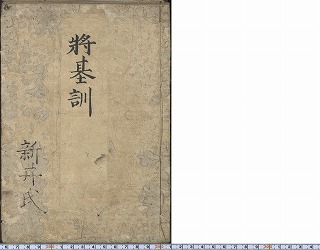 將基訓
新井氏